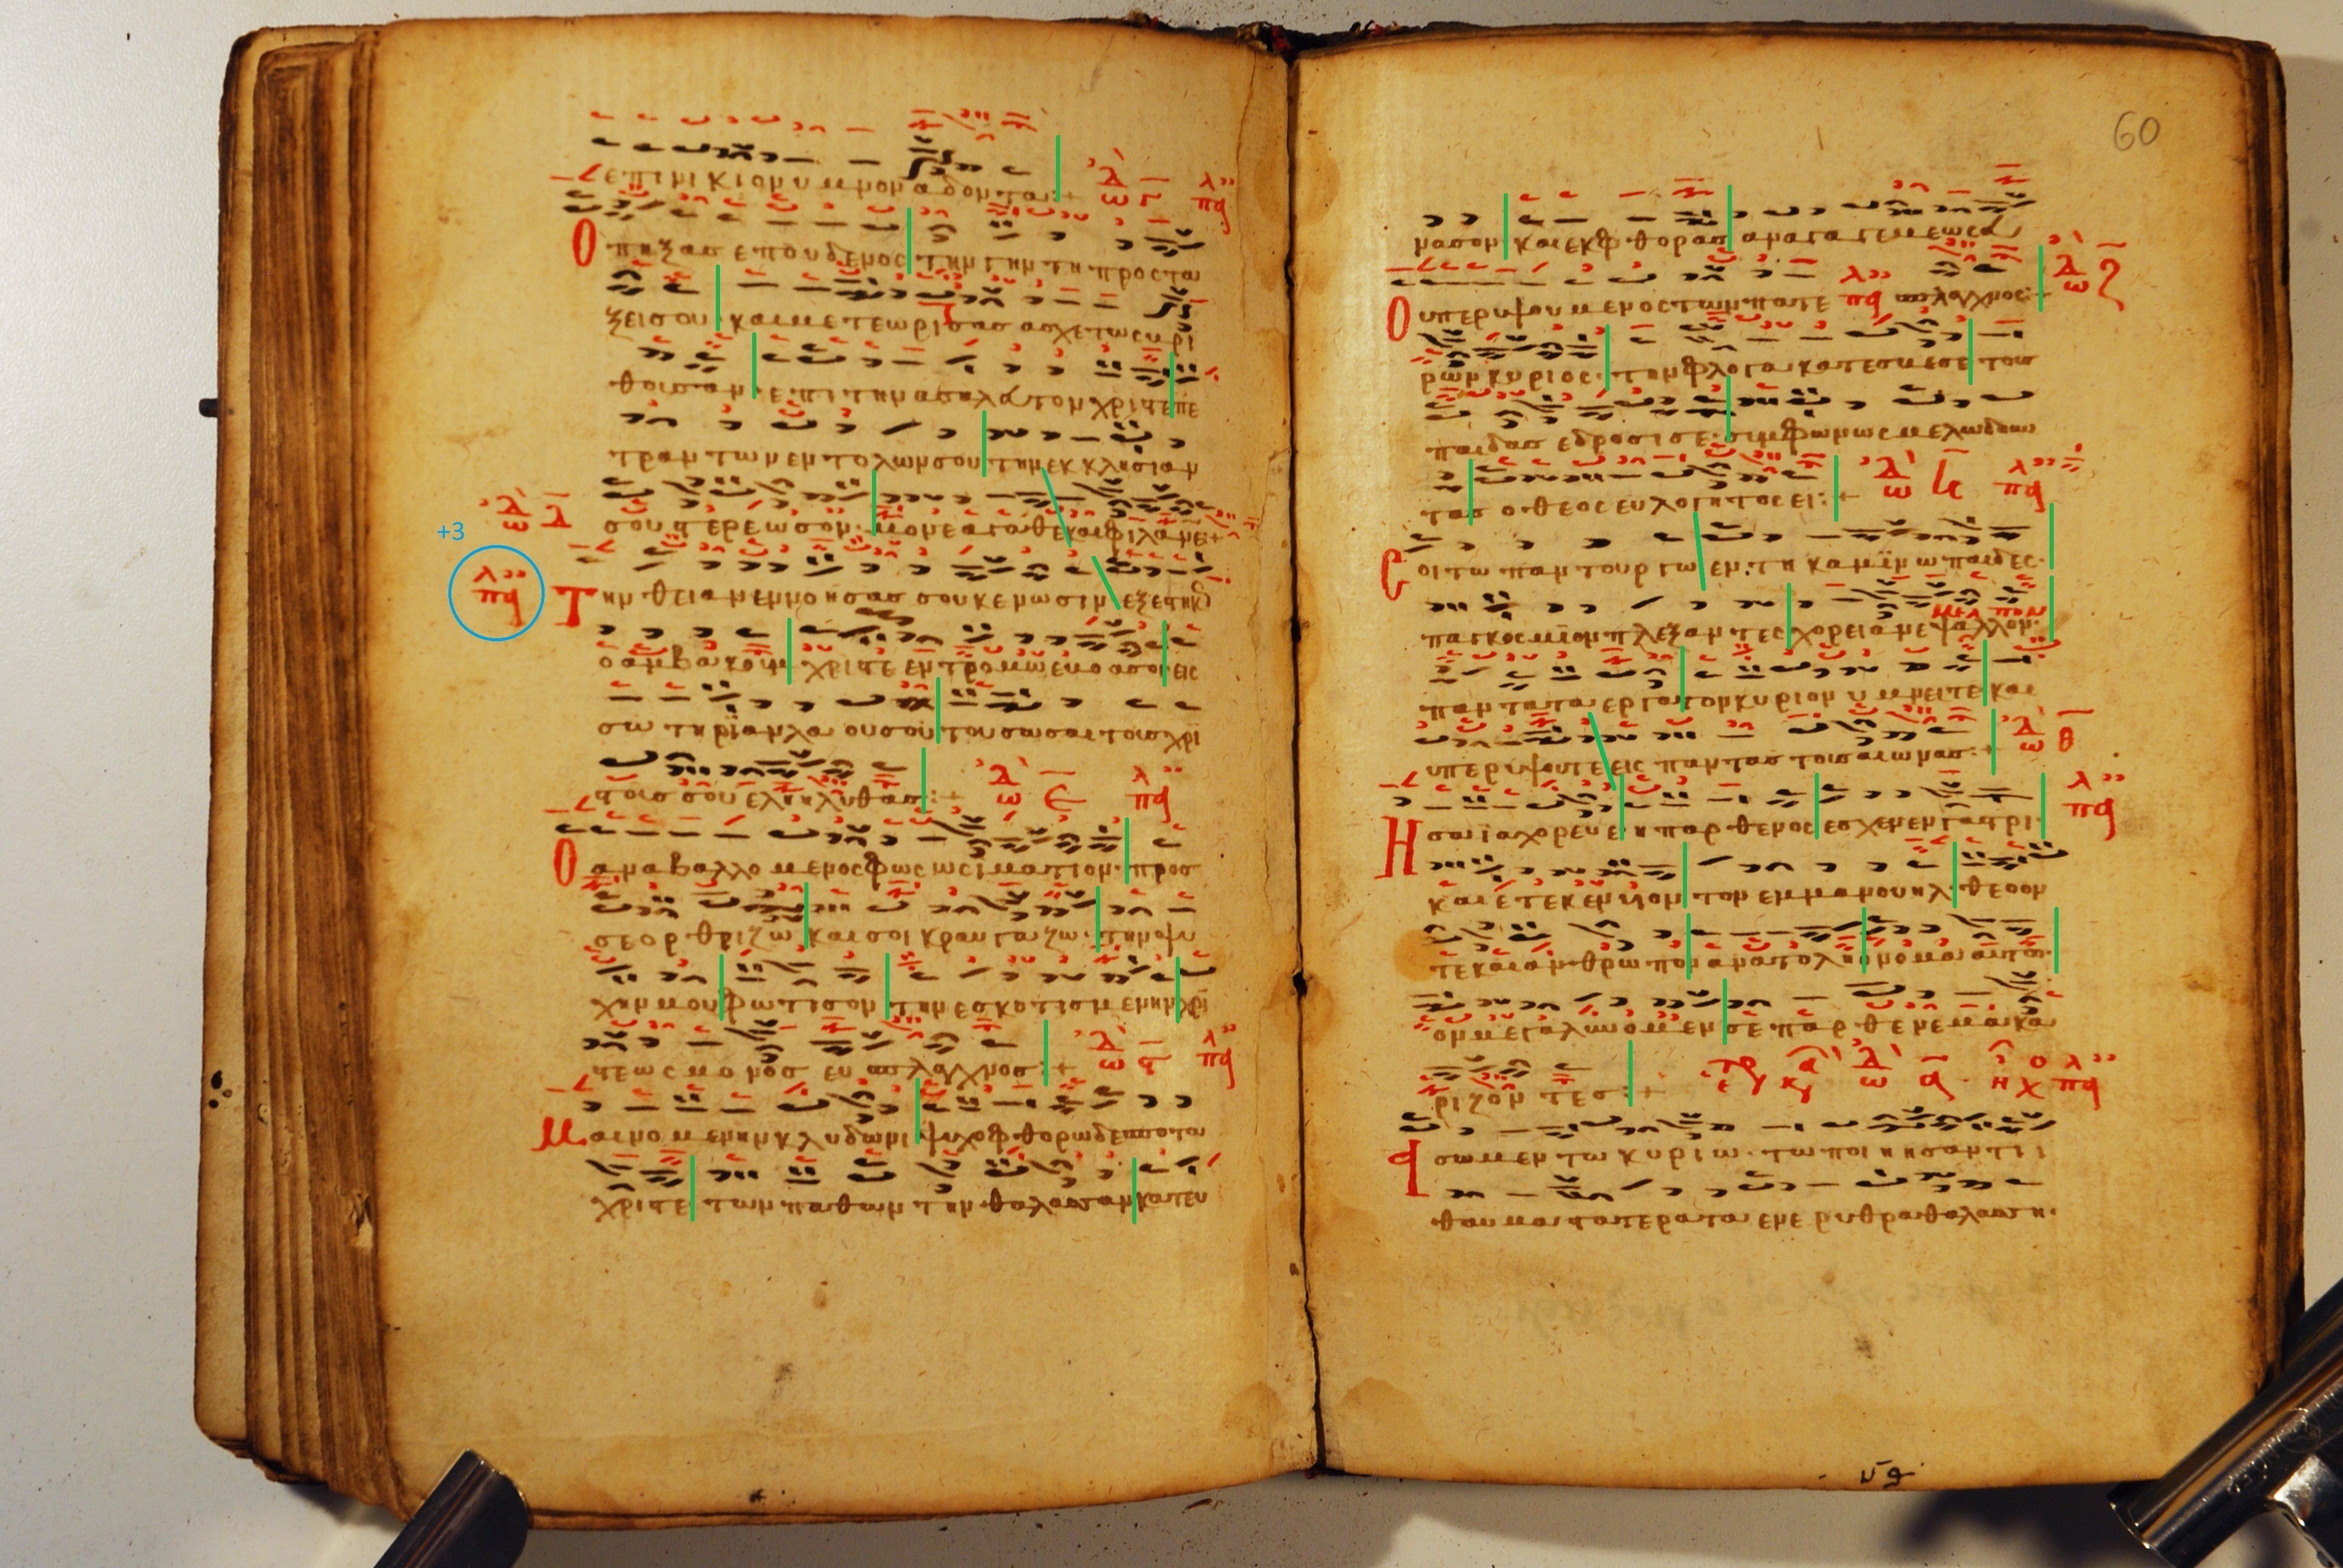 επινικιον υμνον αδοντα:+
ὠδὴ γ
Ο πηξας επουδενος την γην τη προστα
ξει σου και μετεωρισας ασχετως βρι
θουσαν επι την ασαλευτον χριστε πε
τραν των εντολων σου την εκκλησιαν
σου στερεωσον μονε αγαθε και φιλανε:+
+3
Την θειαν εννοησας σου κενωσιν εξεστηκ
ο αμβακουμ χριστε εν τρομω εβοα σοι εις
σωτηριαν λαου σου του σωσαι τους χρι
στους σου εληλυθας:+
Ο αναβαλλομενος φως ως ιματιον προς
σε ορθριζω και σοι κραυγαζω την ψυ
χην μου φωτισον την εσκοτισμενην χρι
στε ως μονος ευσπλαγχνος:+
Μαινομενην κλυδωνι ψυχοφθορω δεσποτα
χριστε των παθων την θαλασσαν κατευ
60
νασον και εκ φθορας αναγαγε με ως ε
ευσπλαγχνος:+
Ο υπερυψουμενος των πατε
ρων κυριος την φλογα κατεσβεσε τους
παιδας εδροσισε συμφωνως μελωδουν
τας ο θεος ευλογητος ει:+
Σοι τω παντουργω εν τη καμινω παιδες
παγκοσμιον πλεξαντες χορειαν εμελπον
ψαλλον
παντα τα εργα τον κυριον υμνειτε και
υπερυψουτε εις παντας τους αιωνας:+
Ησαια χορευε η παρθενος εσχεν εν γαστρι
και ετεκεν υιον τον εμμανουηλ θεον
τε και ανθρωπον ανατολη ονομα αυτω
ον μεγαλυνομεν σε παρθενε μακα
ριζοντες:+
ασωμεν τω κυριω τω ποιησαντι
θαυμαστα τερατα εν ερυθρα θαλασση